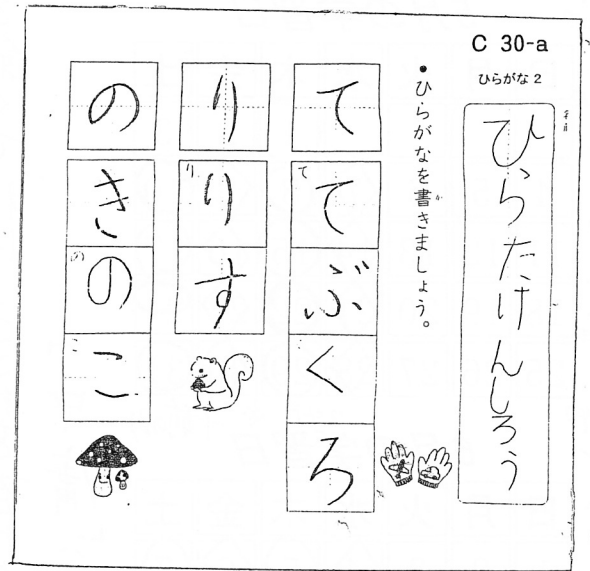 C 30-a
ひらがな 2
ひらたけんしろう
• ひらがなを書きましょう。
か
て
て
てぶくろ
り
り
りす
の
きのこ
の
こ